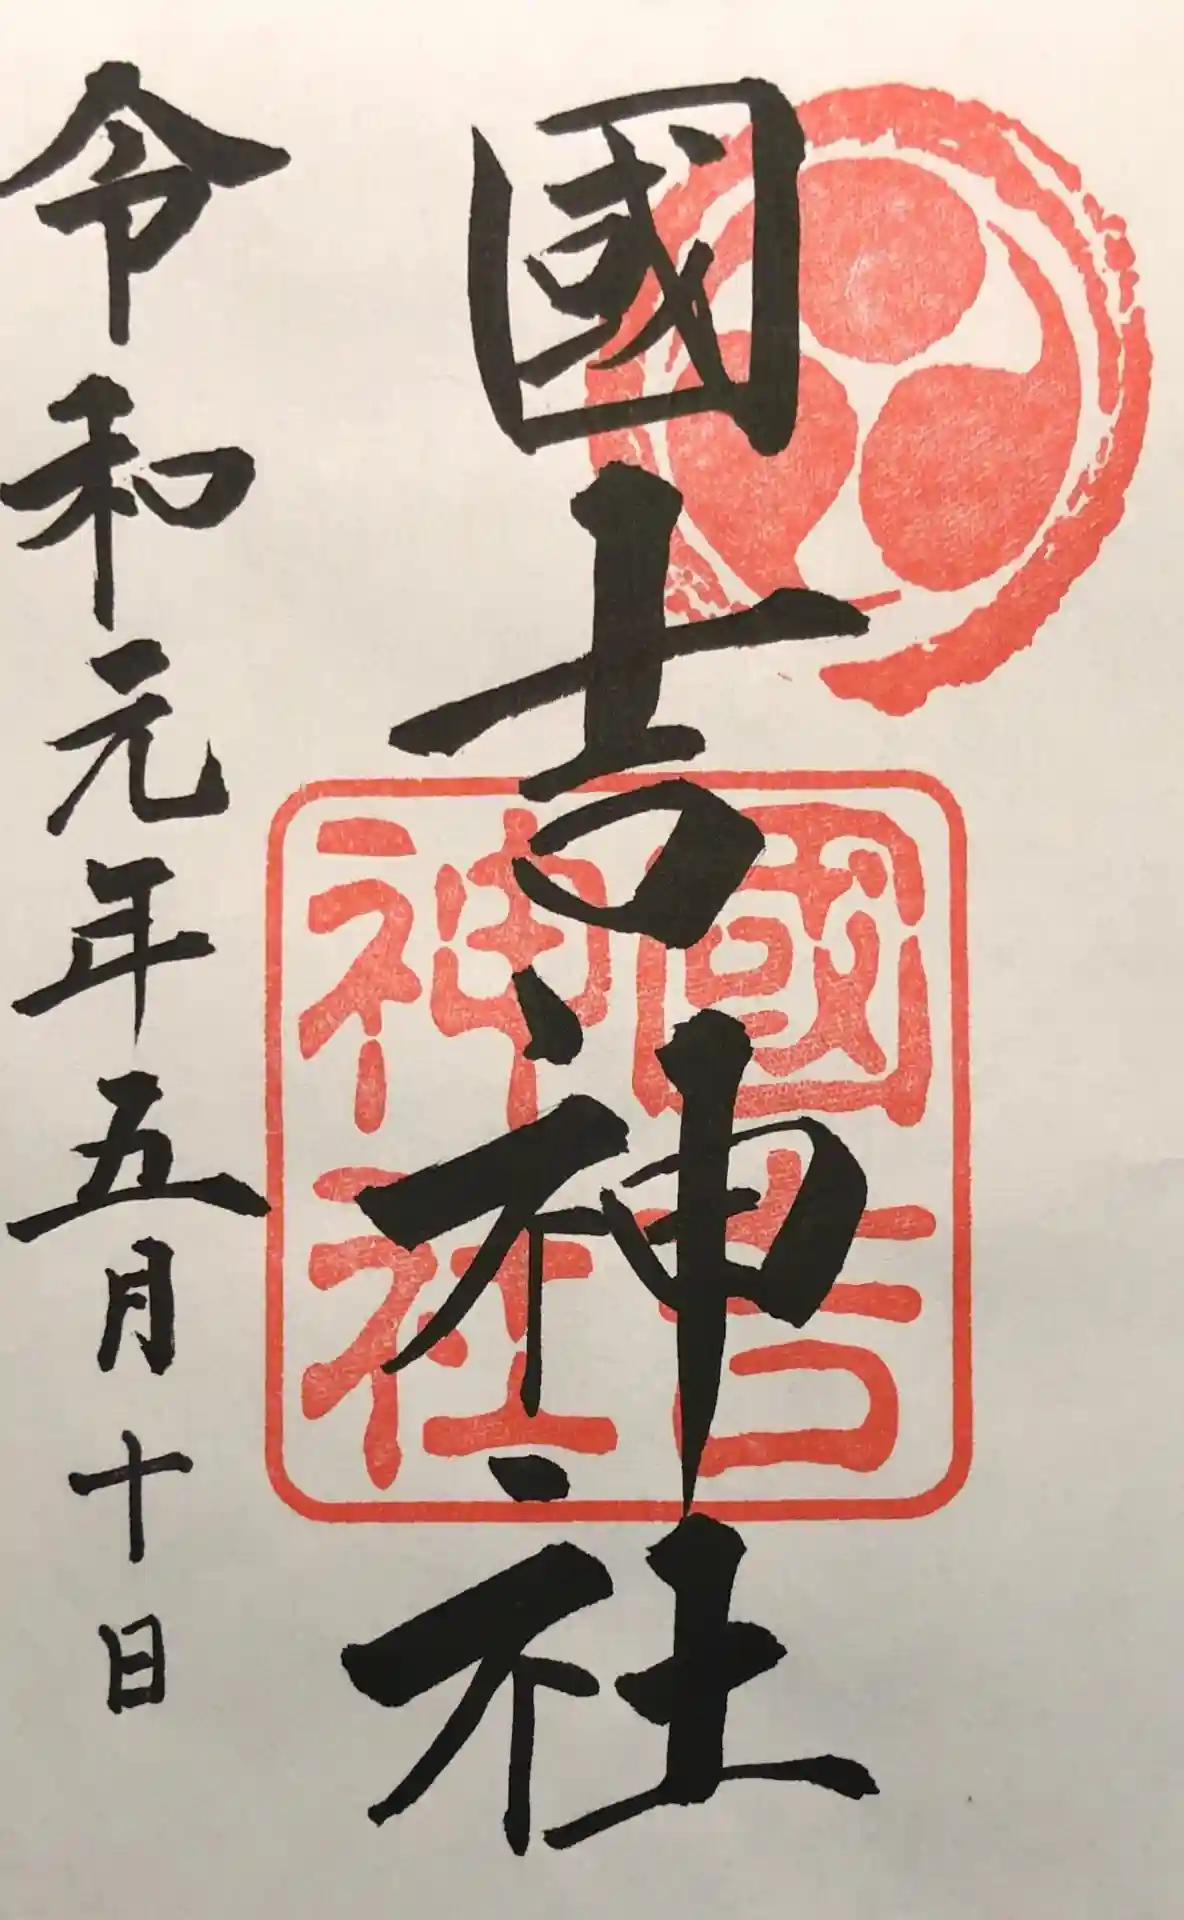 國吉神社
國吉
神社
令和元年五月十日